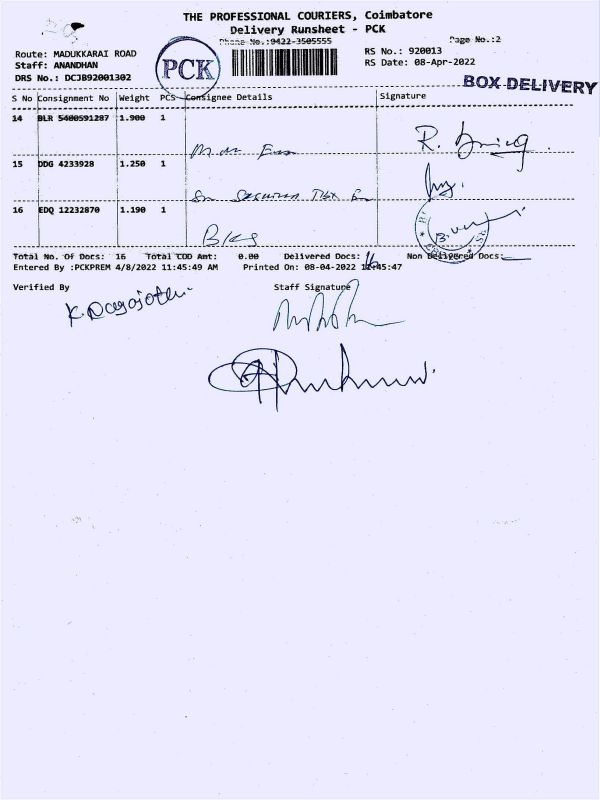 THE PROFESSIONAL COURIERS, Coimbatore
Delivery Runsheet - PCK
Phone No.:0422-3505555
Page No.:2
Route: MADUKKARAI ROAD
RS No.: 920013
Staff: ANANDHAN
RS Date: 08-Apr-2022
DRS No.: DCJB92001302
PCK
BOX DELIVERY
S No Consignment No Weight PCS Consignee Details Signature
14 BLR 5400591287 1.900 1
15 DDG 4233928 1.250 1
16 EDQ 12232870 1.190 1
Total No. Of Docs: 16 Total COD Amt: 0.00 Delivered Docs: 16 Non Delivered Docs:
Entered By :PCKPREM 4/8/2022 11:45:49 AM Printed On: 08-04-2022 11:45:47
Verified By Staff Signature